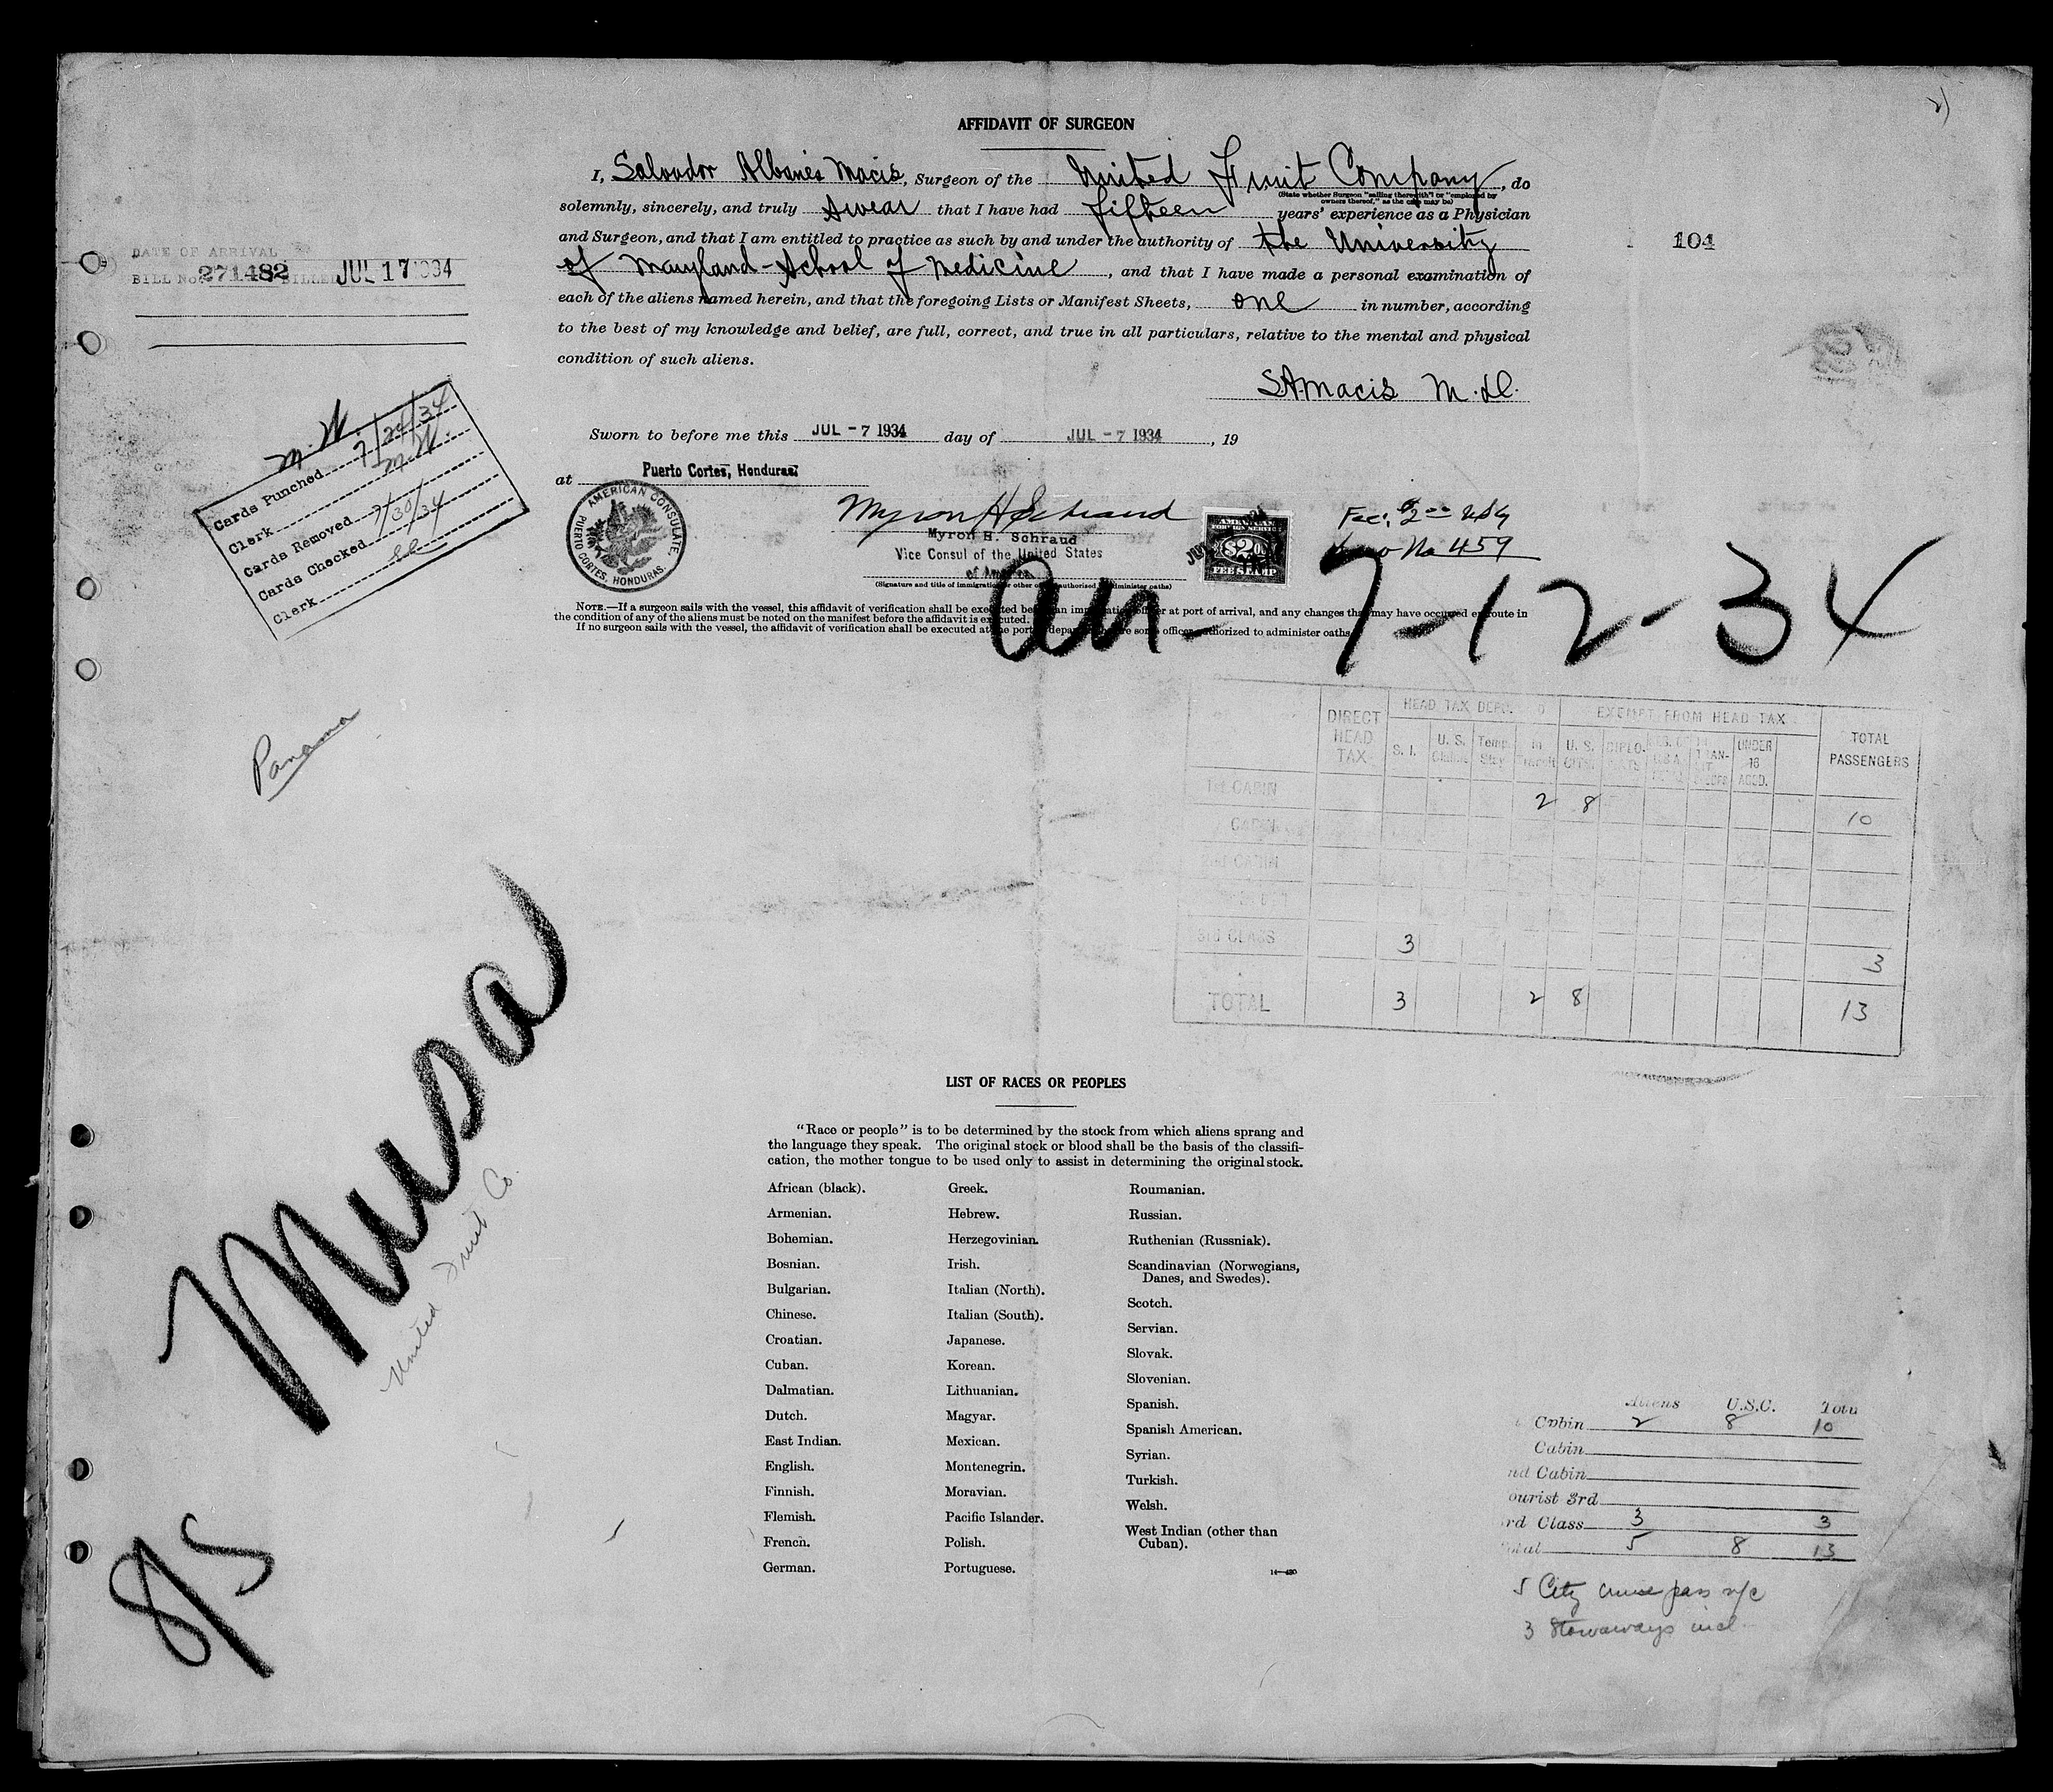 2)
AFFIDAVIT OF SURGEON
I, Salvador Albanés Macis, Surgeon of the United Fruit Company, do
(State whether Surgeon "sailing therewith" or "employed by
owners thereof," as the case may be)
solemnly, sincerely, and truly swear that I have had fifteen years' experience as a Physician
and Surgeon, and that I am entitled to practice as such by and under the authority of the University
of Maryland - School of Medicine, and that I have made a personal examination of
each of the aliens named herein, and that the foregoing Lists or Manifest Sheets, one in number, according
to the best of my knowledge and belief, are full, correct, and true in all particulars, relative to the mental and physical
condition of such aliens.
S.A. Macis M.D.
104
DATE OF ARRIVAL
BILL No. 271482 BILLED JUL 17 1934
Sworn to before me this JUL - 7 1934 day of JUL - 7 1934, 19
at Puerto Cortes, Honduras
AMERICAN CONSULATE,
PUERTO CORTES, HONDURAS.
Myron H Schraud
Myron H. Schraud
Vice Consul of the United States
of America
(Signature and title of immigration or other officer authorized to administer oaths)
AMERICAN
FOREIGN SERVICE
$2.00
FEE STAMP
Fee: $2.00 USG
No 459
NOTE.—If a surgeon sails with the vessel, this affidavit of verification shall be executed before an immigration officer at port of arrival, and any changes that may have occurred en route in
the condition of any of the aliens must be noted on the manifest before the affidavit is executed.
If no surgeon sails with the vessel, the affidavit of verification shall be executed at the port of departure before some officer authorized to administer oaths
7-12-34
M.W.
Cards Punched 7/28/34
Clerk M.W.
Cards Removed
Cards Checked 7/30/34
Clerk
Panama
DIRECT HEAD TAX
HEAD TAX DEPOSITED
EXEMPT FROM HEAD TAX
TOTAL PASSENGERS
S. I. U. S. Claims Temp. Stay In Transit U. S. CITZ. DIPLOMATS UNDER 16 ACCD.
1st CABIN 2 8 10
CABIN
2nd CABIN
3rd CLASS 3 3
TOTAL 3 2 8 13
Musa
United Fruit Co.
8/5
LIST OF RACES OR PEOPLES
"Race or people" is to be determined by the stock from which aliens sprang and
the language they speak. The original stock or blood shall be the basis of the classifi-
cation, the mother tongue to be used only to assist in determining the original stock.
African (black).
Armenian.
Bohemian.
Bosnian.
Bulgarian.
Chinese.
Croatian.
Cuban.
Dalmatian.
Dutch.
East Indian.
English.
Finnish.
Flemish.
French.
German.
Greek.
Hebrew.
Herzegovinian.
Irish.
Italian (North).
Italian (South).
Japanese.
Korean.
Lithuanian.
Magyar.
Mexican.
Montenegrin.
Moravian.
Pacific Islander.
Polish.
Portuguese.
Roumanian.
Russian.
Ruthenian (Russniak).
Scandinavian (Norwegians,
Danes, and Swedes).
Scotch.
Servian.
Slovak.
Slovenian.
Spanish.
Spanish American.
Syrian.
Turkish.
Welsh.
West Indian (other than
Cuban).
Aliens U.S.C. Total
Cabin 2 8 10
Cabin
nd Cabin
ourist 3rd
rd Class 3 3
Total 5 8 13
5 City cruise pass n/c
3 Stowaways incl